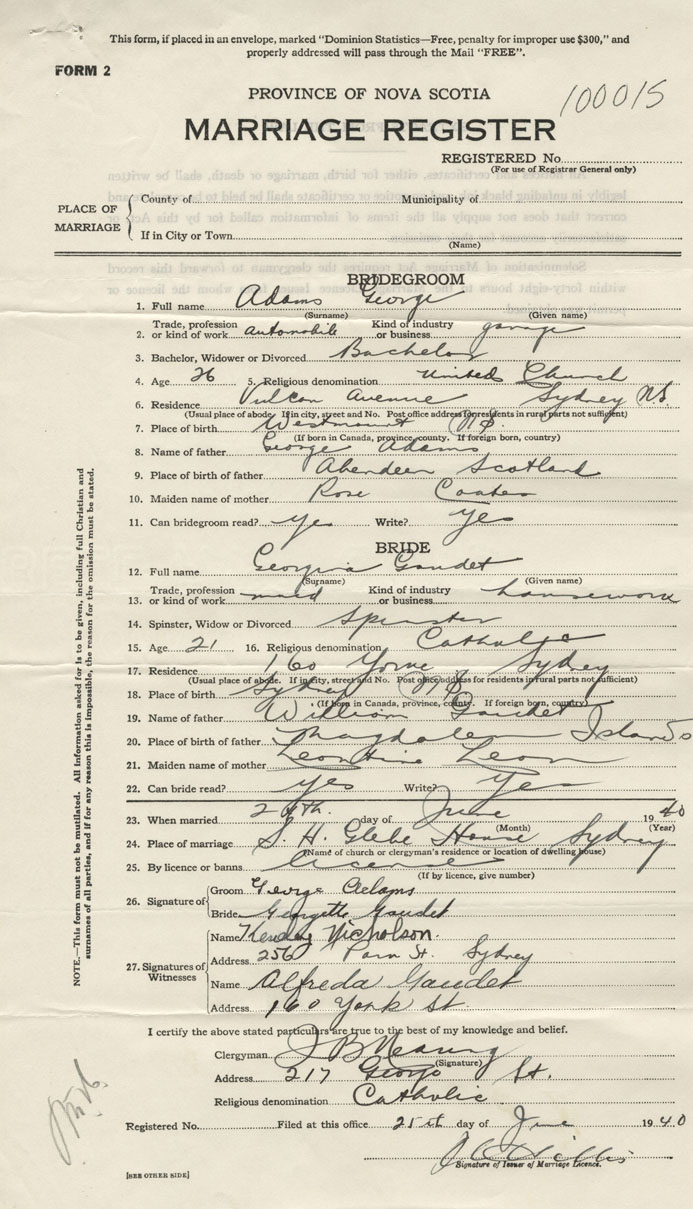 This form, if placed in an envelope, marked "Dominion Statistics—Free, penalty for improper use $300," and
properly addressed will pass through the Mail "FREE".
FORM 2
PROVINCE OF NOVA SCOTIA
100015
MARRIAGE REGISTER
REGISTERED No.
(For use of Registrar General only)
PLACE OF MARRIAGE
County of Municipality of
If in City or Town
(Name)
BRIDEGROOM
1. Full name Adams George
(Surname) (Given name)
2. Trade, profession or kind of work automobile Kind of industry or business garage
3. Bachelor, Widower or Divorced Bachelor
4. Age 26 5. Religious denomination United Church
6. Residence Vulcan Avenue Sydney N.S.
(Usual place of abode. If in city, street and No. Post office address for residents in rural parts not sufficient)
7. Place of birth Westmount N.S.
(If born in Canada, province, county. If foreign born, country)
8. Name of father George Adams
9. Place of birth of father Aberdeen Scotland
10. Maiden name of mother Rose Coates
11. Can bridegroom read? Yes Write? Yes
BRIDE
12. Full name Georgina Gaudet
(Surname) (Given name)
13. Trade, profession or kind of work maid Kind of industry or business housework
14. Spinster, Widow or Divorced Spinster
15. Age 21 16. Religious denomination Catholic
17. Residence 160 Sydney
(Usual place of abode. If in city, street and No. Post office address for residents in rural parts not sufficient)
18. Place of birth Sydney N.S.
(If born in Canada, province, county. If foreign born, country)
19. Name of father William Gaudet
20. Place of birth of father Magdalen Islands
21. Maiden name of mother Leontine Leon
22. Can bride read? Yes Write? Yes
23. When married day of June 1940
(Month) (Year)
24. Place of marriage S. H. Glebe House Sydney
(Name of church or clergyman's residence or location of dwelling house)
25. By licence or banns licence
(If by licence, give number)
26. Signature of
Groom George Adams
Bride Georgette Gaudet
27. Signatures of Witnesses
Name Nicholson.
Address 256 St. Sydney
Name Alfreda Gaudet
Address 160 York St.
I certify the above stated particulars are true to the best of my knowledge and belief.
Clergyman
(Signature)
Address 217 George St.
Religious denomination Catholic
Registered No. Filed at this office 25th day of June 1940
Signature of Issuer of Marriage Licence.
[SEE OTHER SIDE]
NOTE.—This form must not be mutilated. All information asked for is to be given, including full Christian and
surnames of all parties, and if for any reason this is impossible, the reason for the omission must be stated.